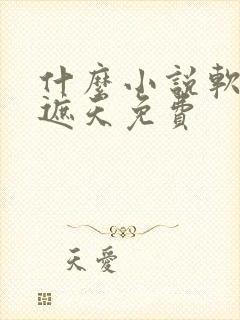 什麼小說軟
遮天免費
天愛